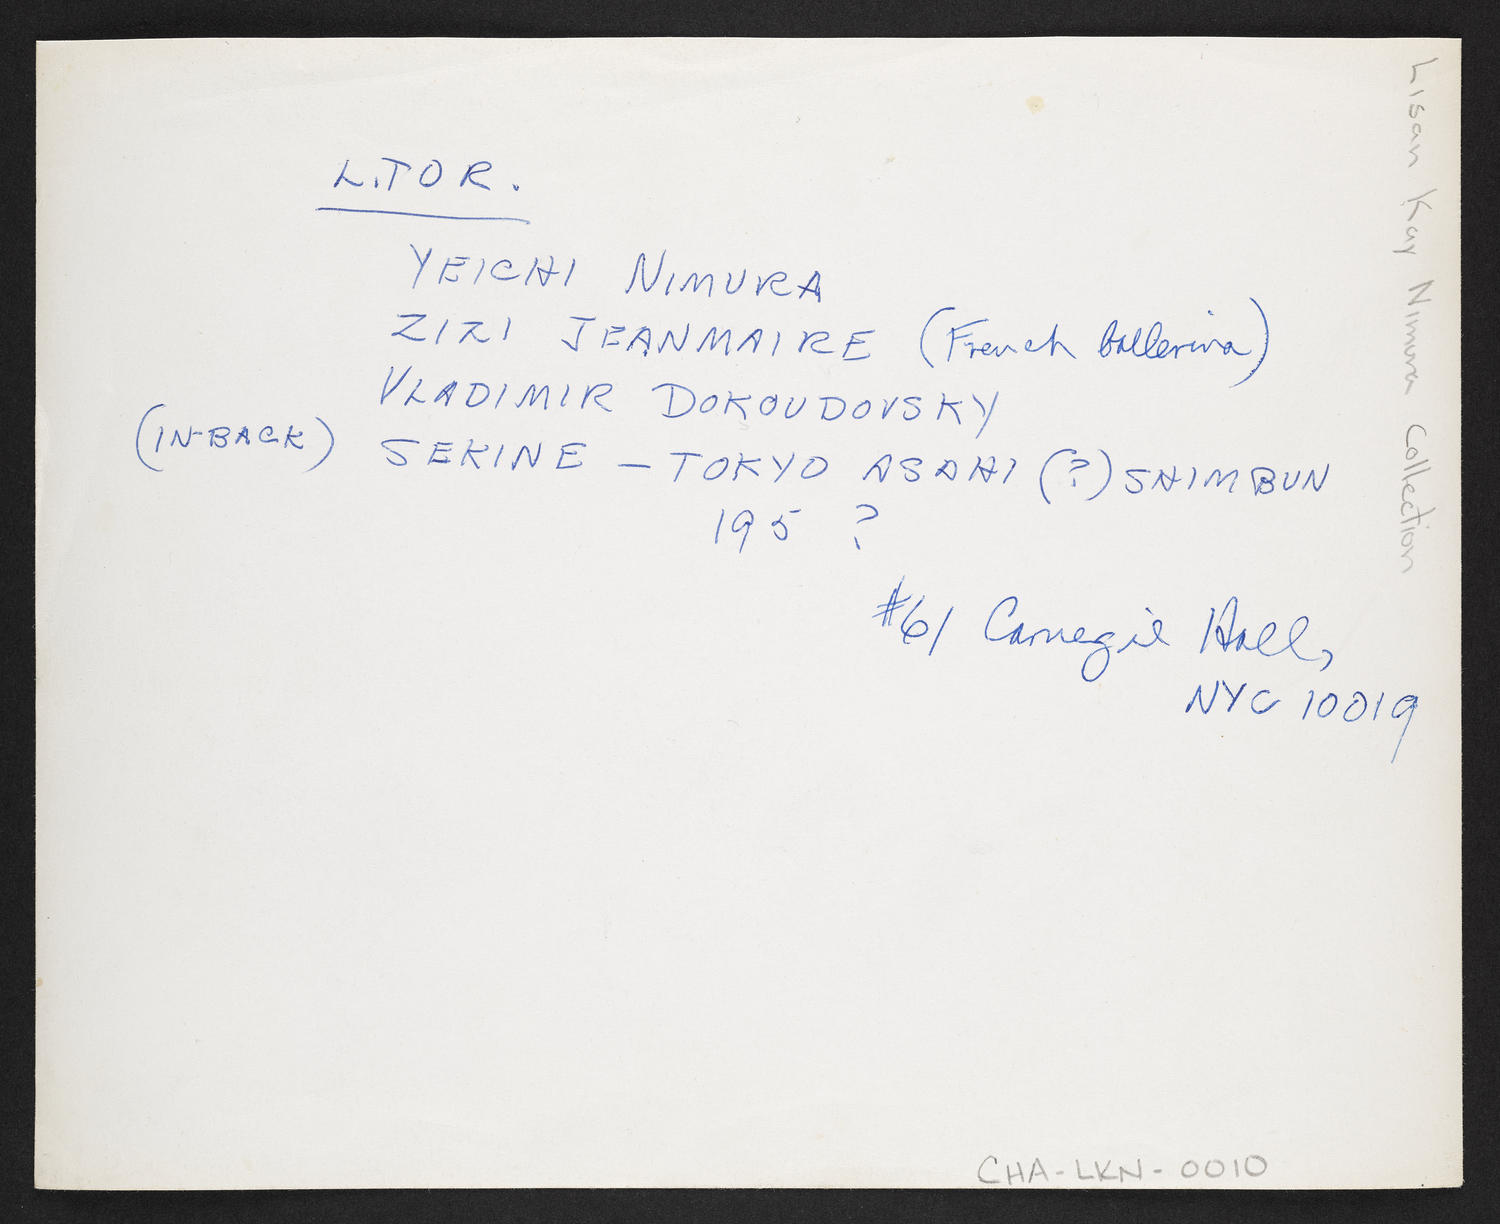 L.TOR.
YEICHI NIMURA
ZIZI JEANMAIRE (French ballerina)
VLADIMIR DOKOUDOVSKY
(IN-BACK) SEKINE — TOKYO ASAHI (?) SHIMBUN
195 ?
#61 Carnegie Hall,
NYC 10019
Lisan Kay Nimura Collection
CHA-LKN-0010